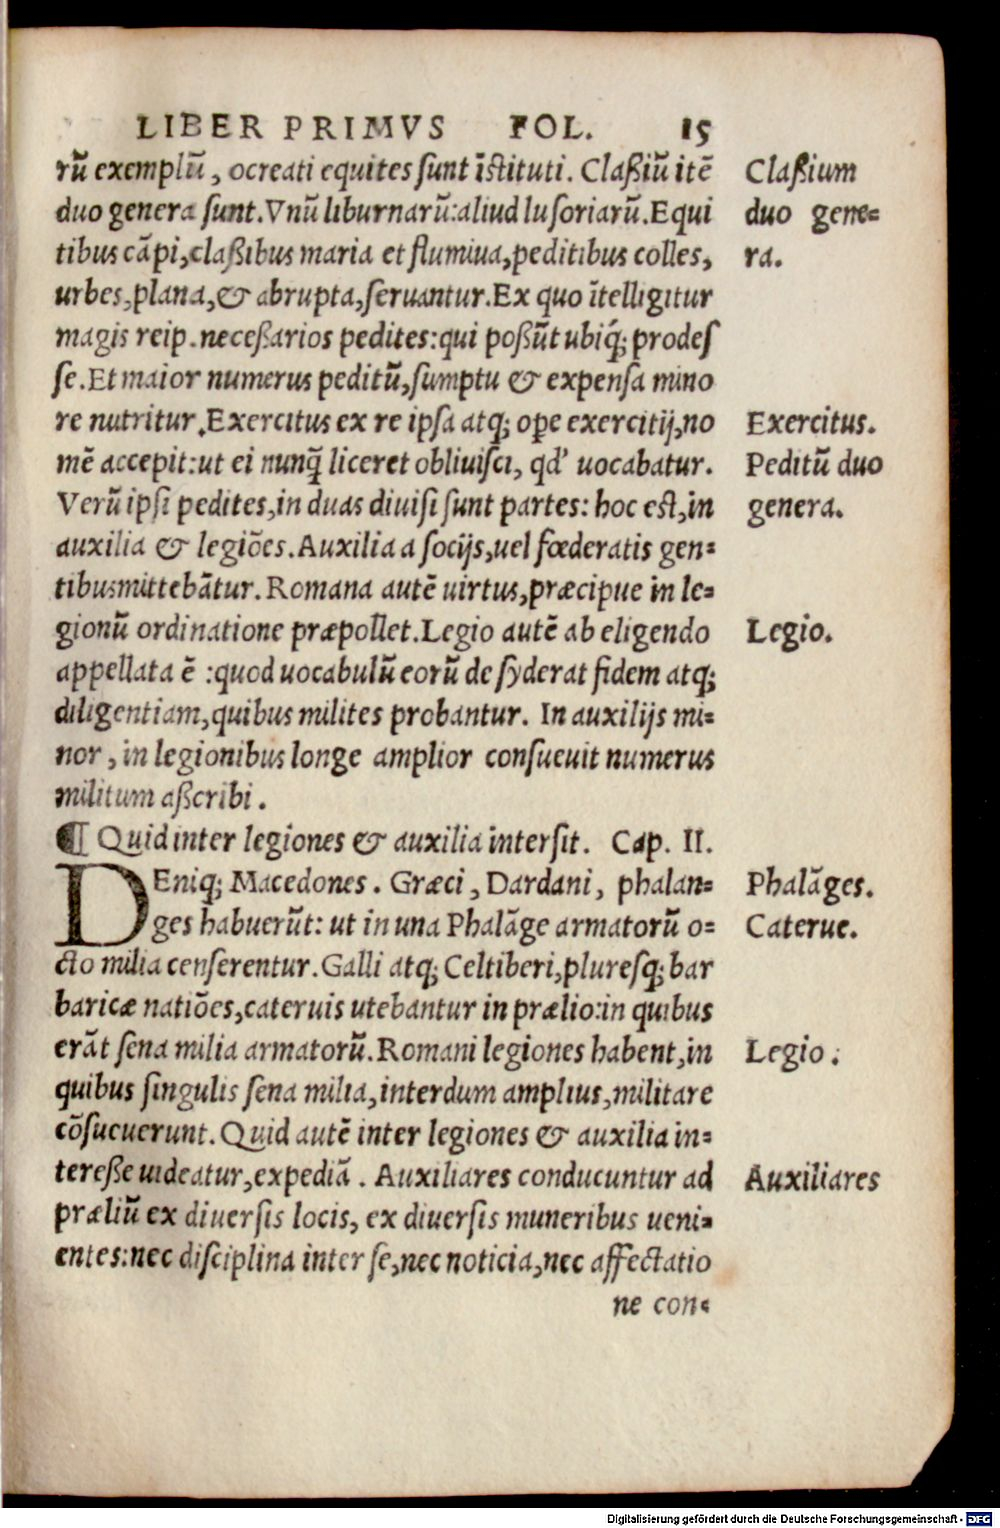 LIBER PRIMVS FOL. 15
rũ exemplũ, ocreati equites ſunt ĩſtituti. Claßiũ itẽ
Claßium
duo genera ſunt. Vnũ liburnarũ: aliud luſoriarũ. Equi
duo gene=
tibus cãpi, claßibus maria et flumiua, peditibus colles,
ra.
urbes, plana, & abrupta, ſeruantur. Ex quo ĩtelligitur
magis reip. neceßarios pedites: qui poßũt ubiq́; prodeſ
ſe. Et maior numerus peditũ, ſumptu & expenſa mino
re nutritur. Exercitus ex re ipſa atq; ope exercitij, no
Exercitus.
mẽ accepit: ut ei nunq̃ liceret obliuiſci, qd' uocabatur.
Peditũ duo
Verũ ipſi pedites, in duas diuiſi ſunt partes: hoc eſt, in
genera.
auxilia & legiões. Auxilia a ſocijs, uel fœderatis gen=
tibusmittebãtur. Romana autẽ uirtus, præcipue in le=
gionũ ordinatione præpollet. Legio autẽ ab eligendo
Legio.
appellata ẽ : quod uocabulũ eorũ de ſyderat fidem atq;
diligentiam, quibus milites probantur. In auxilijs mi=
nor, in legionibus longe amplior conſueuit numerus
militum aßcribi.
¶ Quid inter legiones & auxilia interſit. Cap. II.
DEniq; Macedones. Græci, Dardani, phalan=
Phalãges.
ges habuerũt: ut in una Phalãge armatorũ o=
Caterue.
cto milia cenſerentur. Galli atq; Celtiberi, pluresq; bar
baricæ natiões, cateruis utebantur in prælio: in quibus
erãt ſena milia armatorũ. Romani legiones habent, in
Legio.
quibus ſingulis ſena milia, interdum amplius, militare
cõſucuerunt. Quid autẽ inter legiones & auxilia in=
tereße uideatur, expediã. Auxiliares conducuntur ad
Auxiliares
præliũ ex diuerſis locis, ex diuerſis muneribus ueni=
entes: nec diſciplina inter ſe, nec noticia, nec affectatio
ne con=
Digitalisierung gefördert durch die Deutsche Forschungsgemeinschaft - DFG